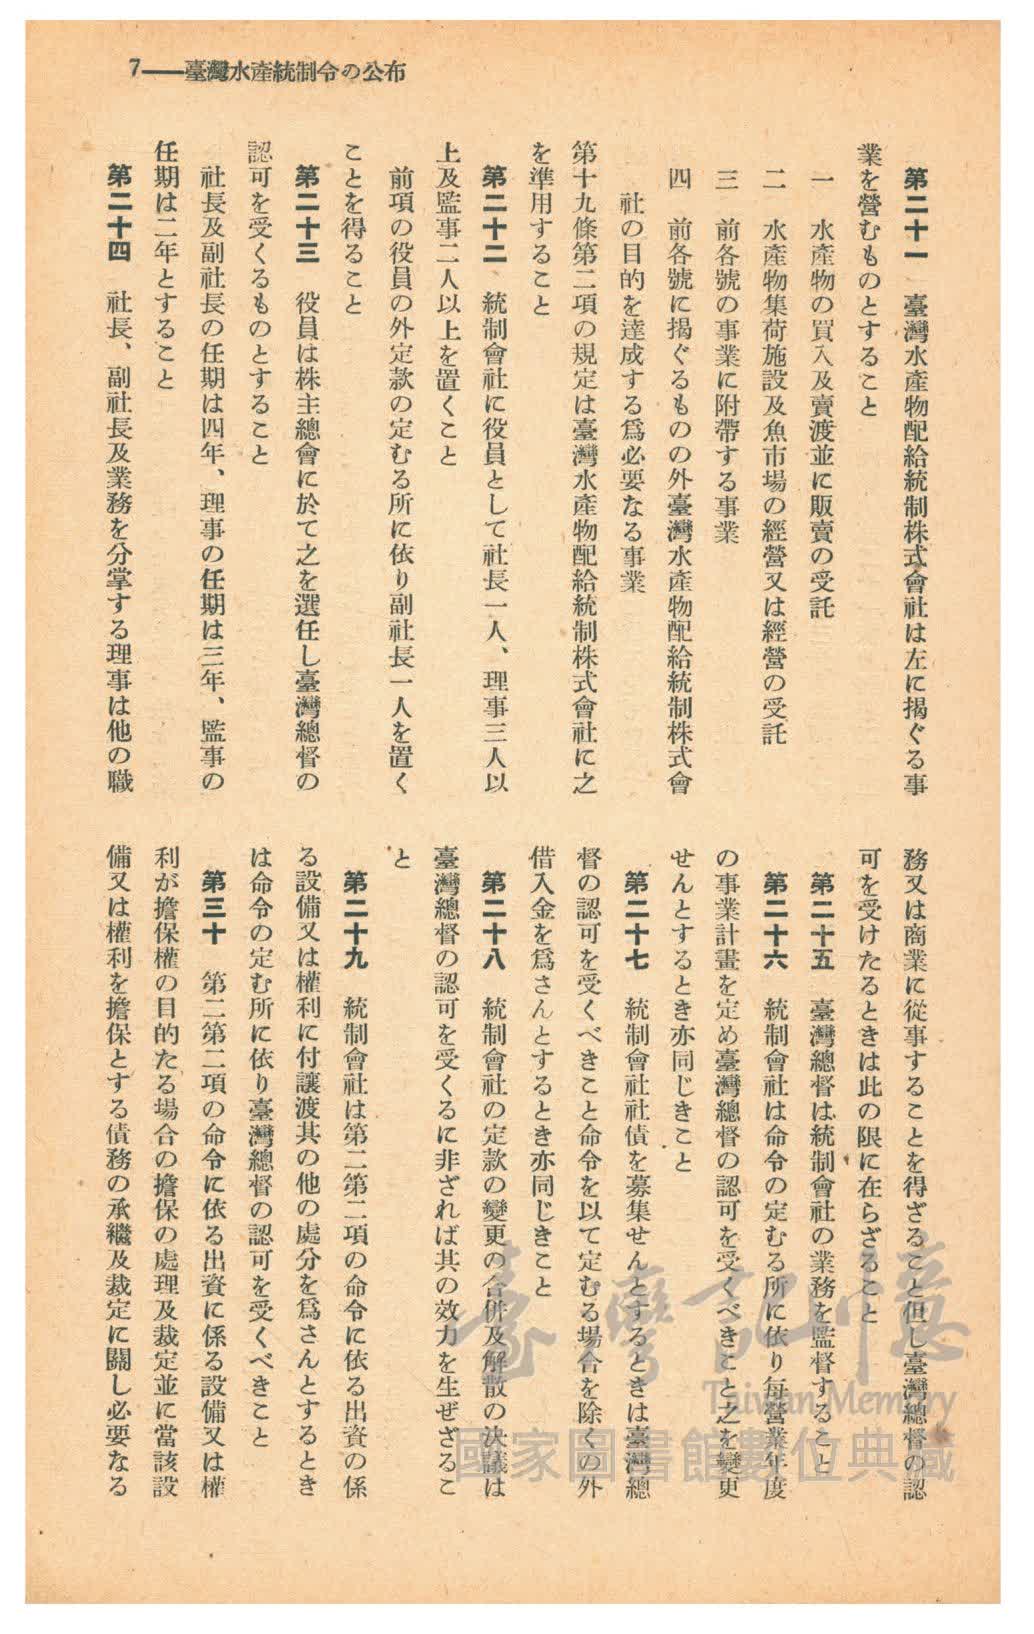 7——臺灣水產統制令の公布
第二十一　臺灣水產物配給統制株式會社は左に揭ぐる事
業を營むものとすること
一　水產物の買入及賣渡並に販賣の受託
二　水產物集荷施設及魚市場の經營又は經營の受託
三　前各號の事業に附帶する事業
四　前各號に揭ぐるものの外臺灣水產物配給統制株式會
社の目的を達成する爲必要なる事業
第十九條第二項の規定は臺灣水產物配給統制株式會社に之
を準用すること
第二十二　統制會社に役員として社長一人、理事三人以
上及監事二人以上を置くこと
前項の役員の外定款の定むる所に依り副社長一人を置く
ことを得ること
第二十三　役員は株主總會に於て之を選任し臺灣總督の
認可を受くるものとすること
社長及副社長の任期は四年、理事の任期は三年、監事の
任期は二年とすること
第二十四　社長、副社長及業務を分掌する理事は他の職
務又は商業に從事することを得ざること但し臺灣總督の認
可を受けたるときは此の限に在らざること
第二十五　臺灣總督は統制會社の業務を監督すること
第二十六　統制會社は命令の定むる所に依り每營業年度
の事業計畫を定め臺灣總督の認可を受くべきこと之を變更
せんとするとき亦同じきこと
第二十七　統制會社社債を募集せんとするときは臺灣總
督の認可を受くべきこと命令を以て定むる場合を除くの外
借入金を爲さんとするとき亦同じきこと
第二十八　統制會社の定款の變更の合併及解散の決議は
臺灣總督の認可を受くるに非ざれば其の效力を生ぜざるこ
と
第二十九　統制會社は第二第二項の命令に依る出資の係
る設備又は權利に付讓渡其の他の處分を爲さんとするとき
は命令の定む所に依り臺灣總督の認可を受くべきこと
第三十　第二第二項の命令に依る出資に係る設備又は權
利が擔保權の目的たる場合の擔保の處理及裁定並に當該設
備又は權利を擔保とする債務の承繼及裁定に關し必要なる
臺灣記憶
Taiwan Memory
國家圖書館數位典藏